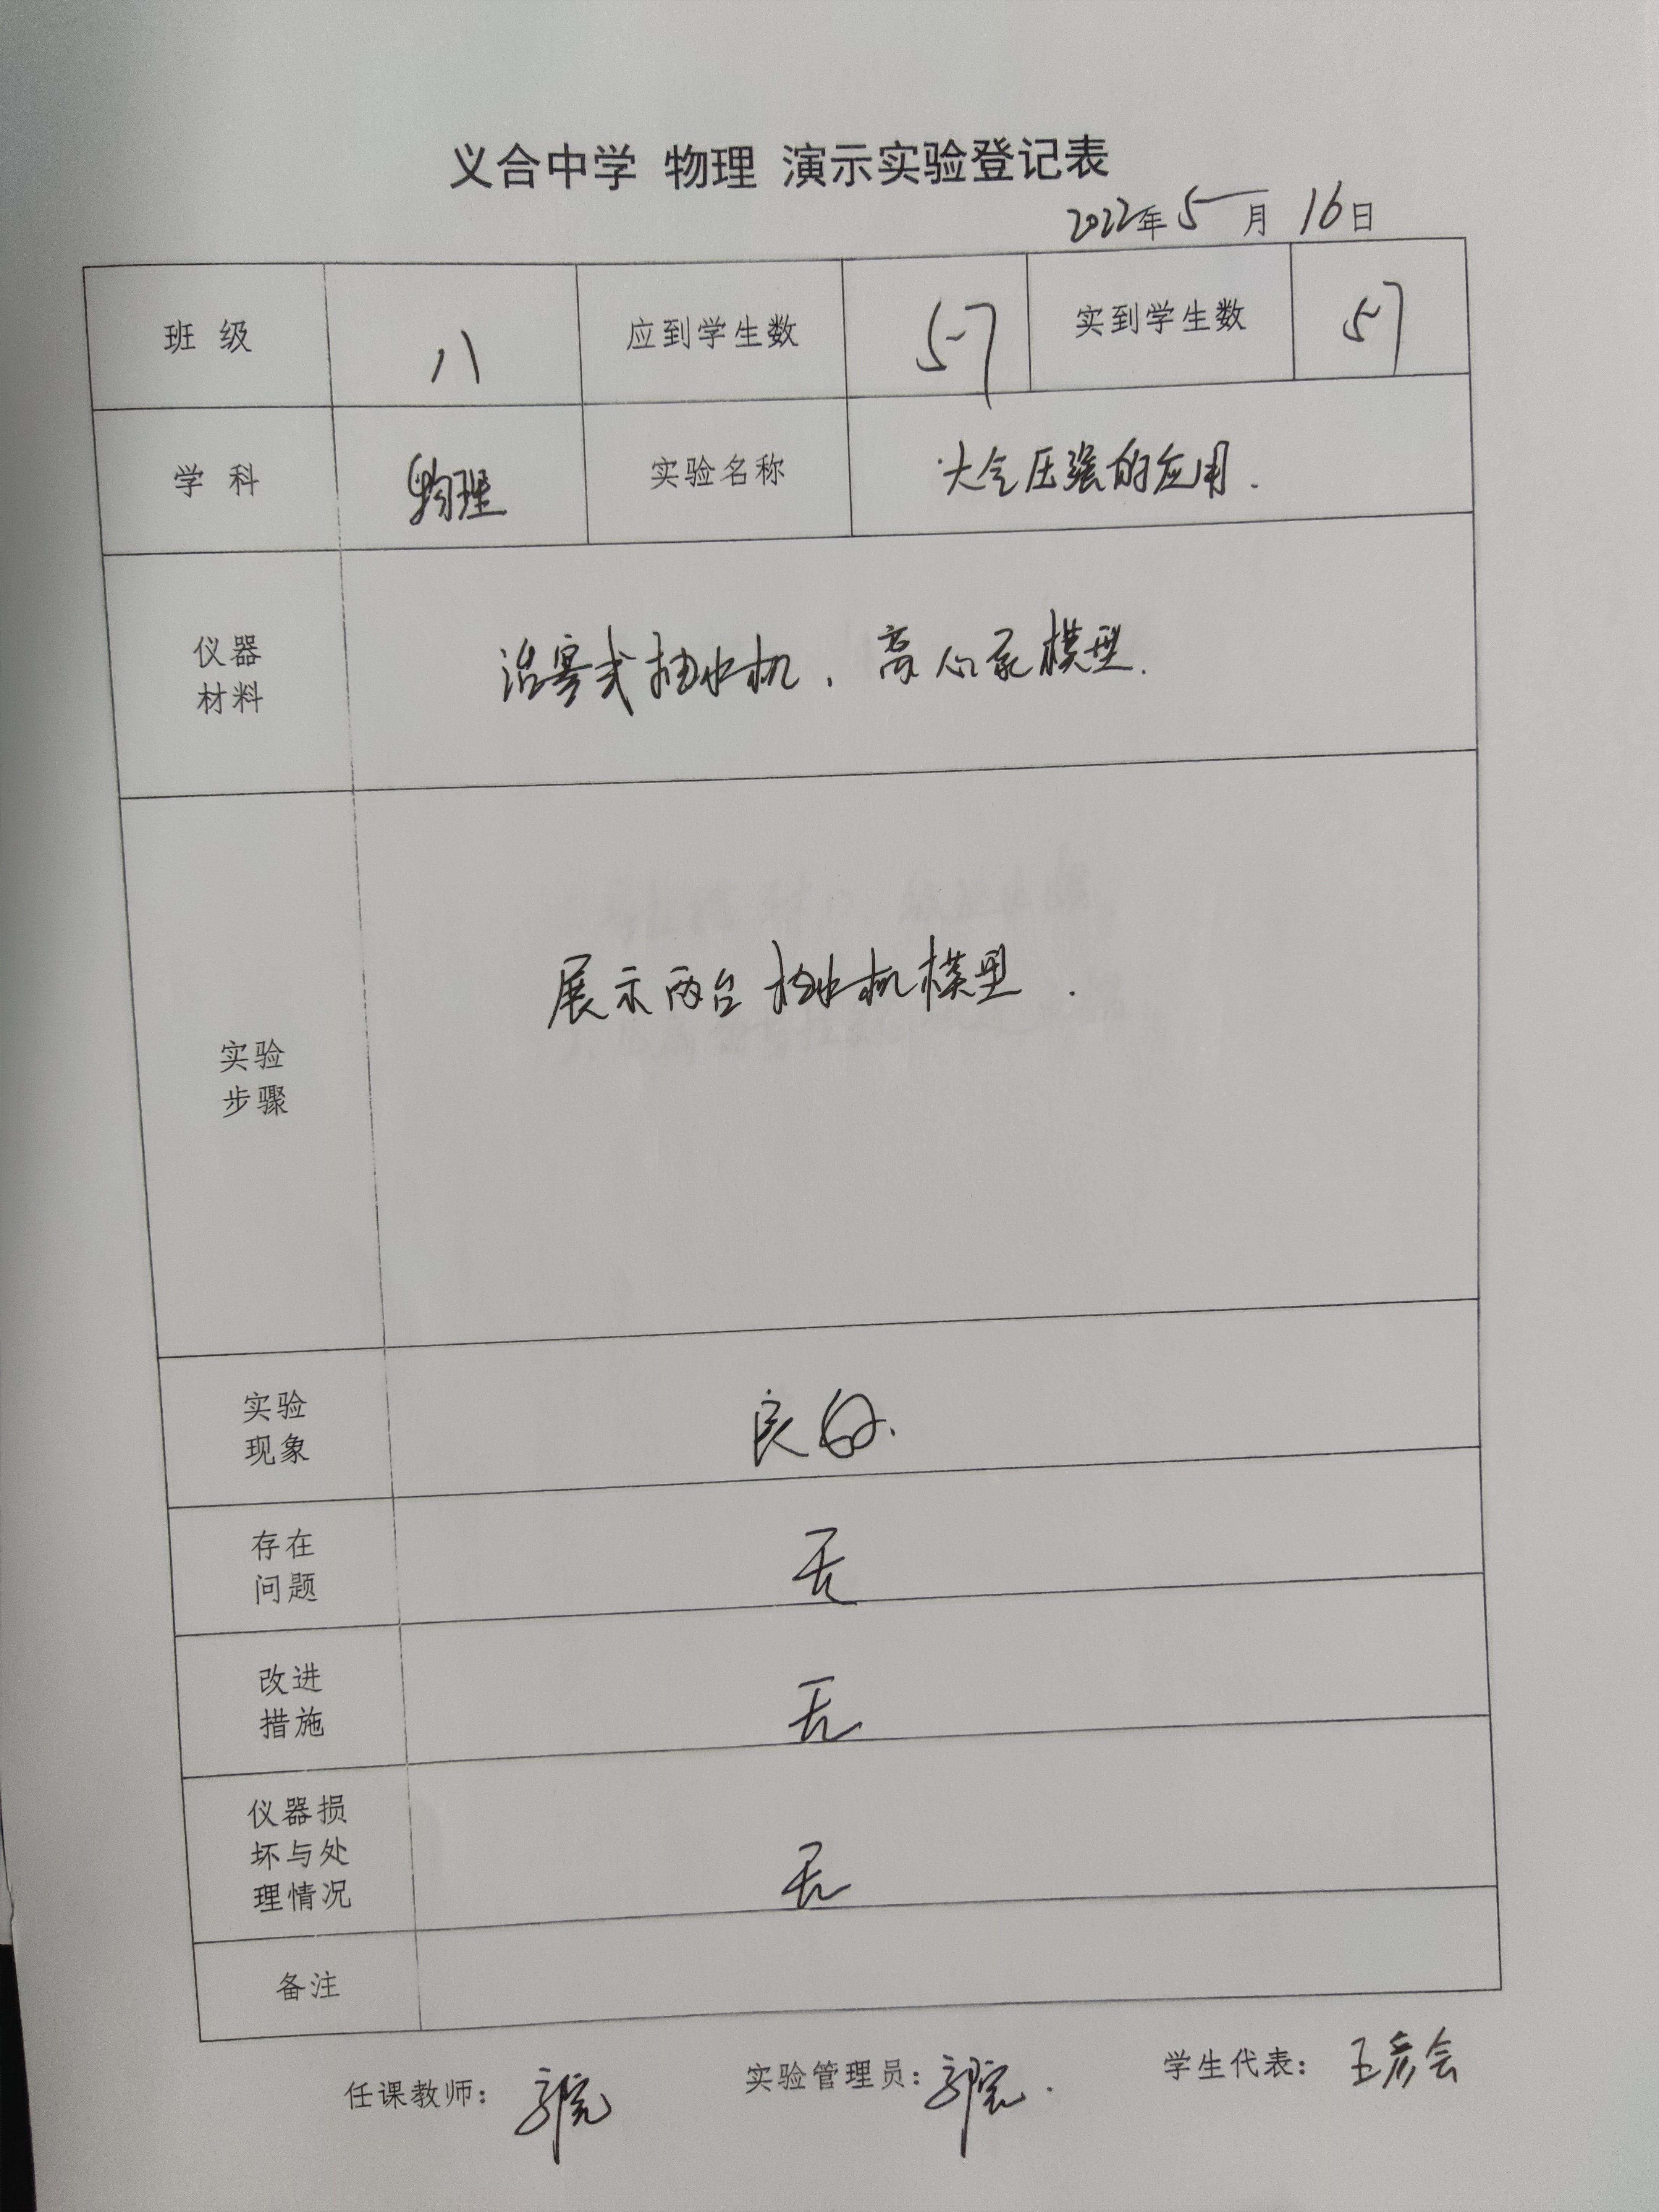 义合中学 物理 演示实验登记表
2022年 5 月 16日
班 级 八 应到学生数 57 实到学生数 57
学 科 物理 实验名称 大气压强的应用.
仪器
材料
活塞式抽水机. 离心泵模型.
实验
步骤
展示两台抽水机模型.
实验
现象
良好.
存在
问题
无
改进
措施
无
仪器损
坏与处
理情况
无
备注
任课教师: 实验管理员: 学生代表: 王彦会